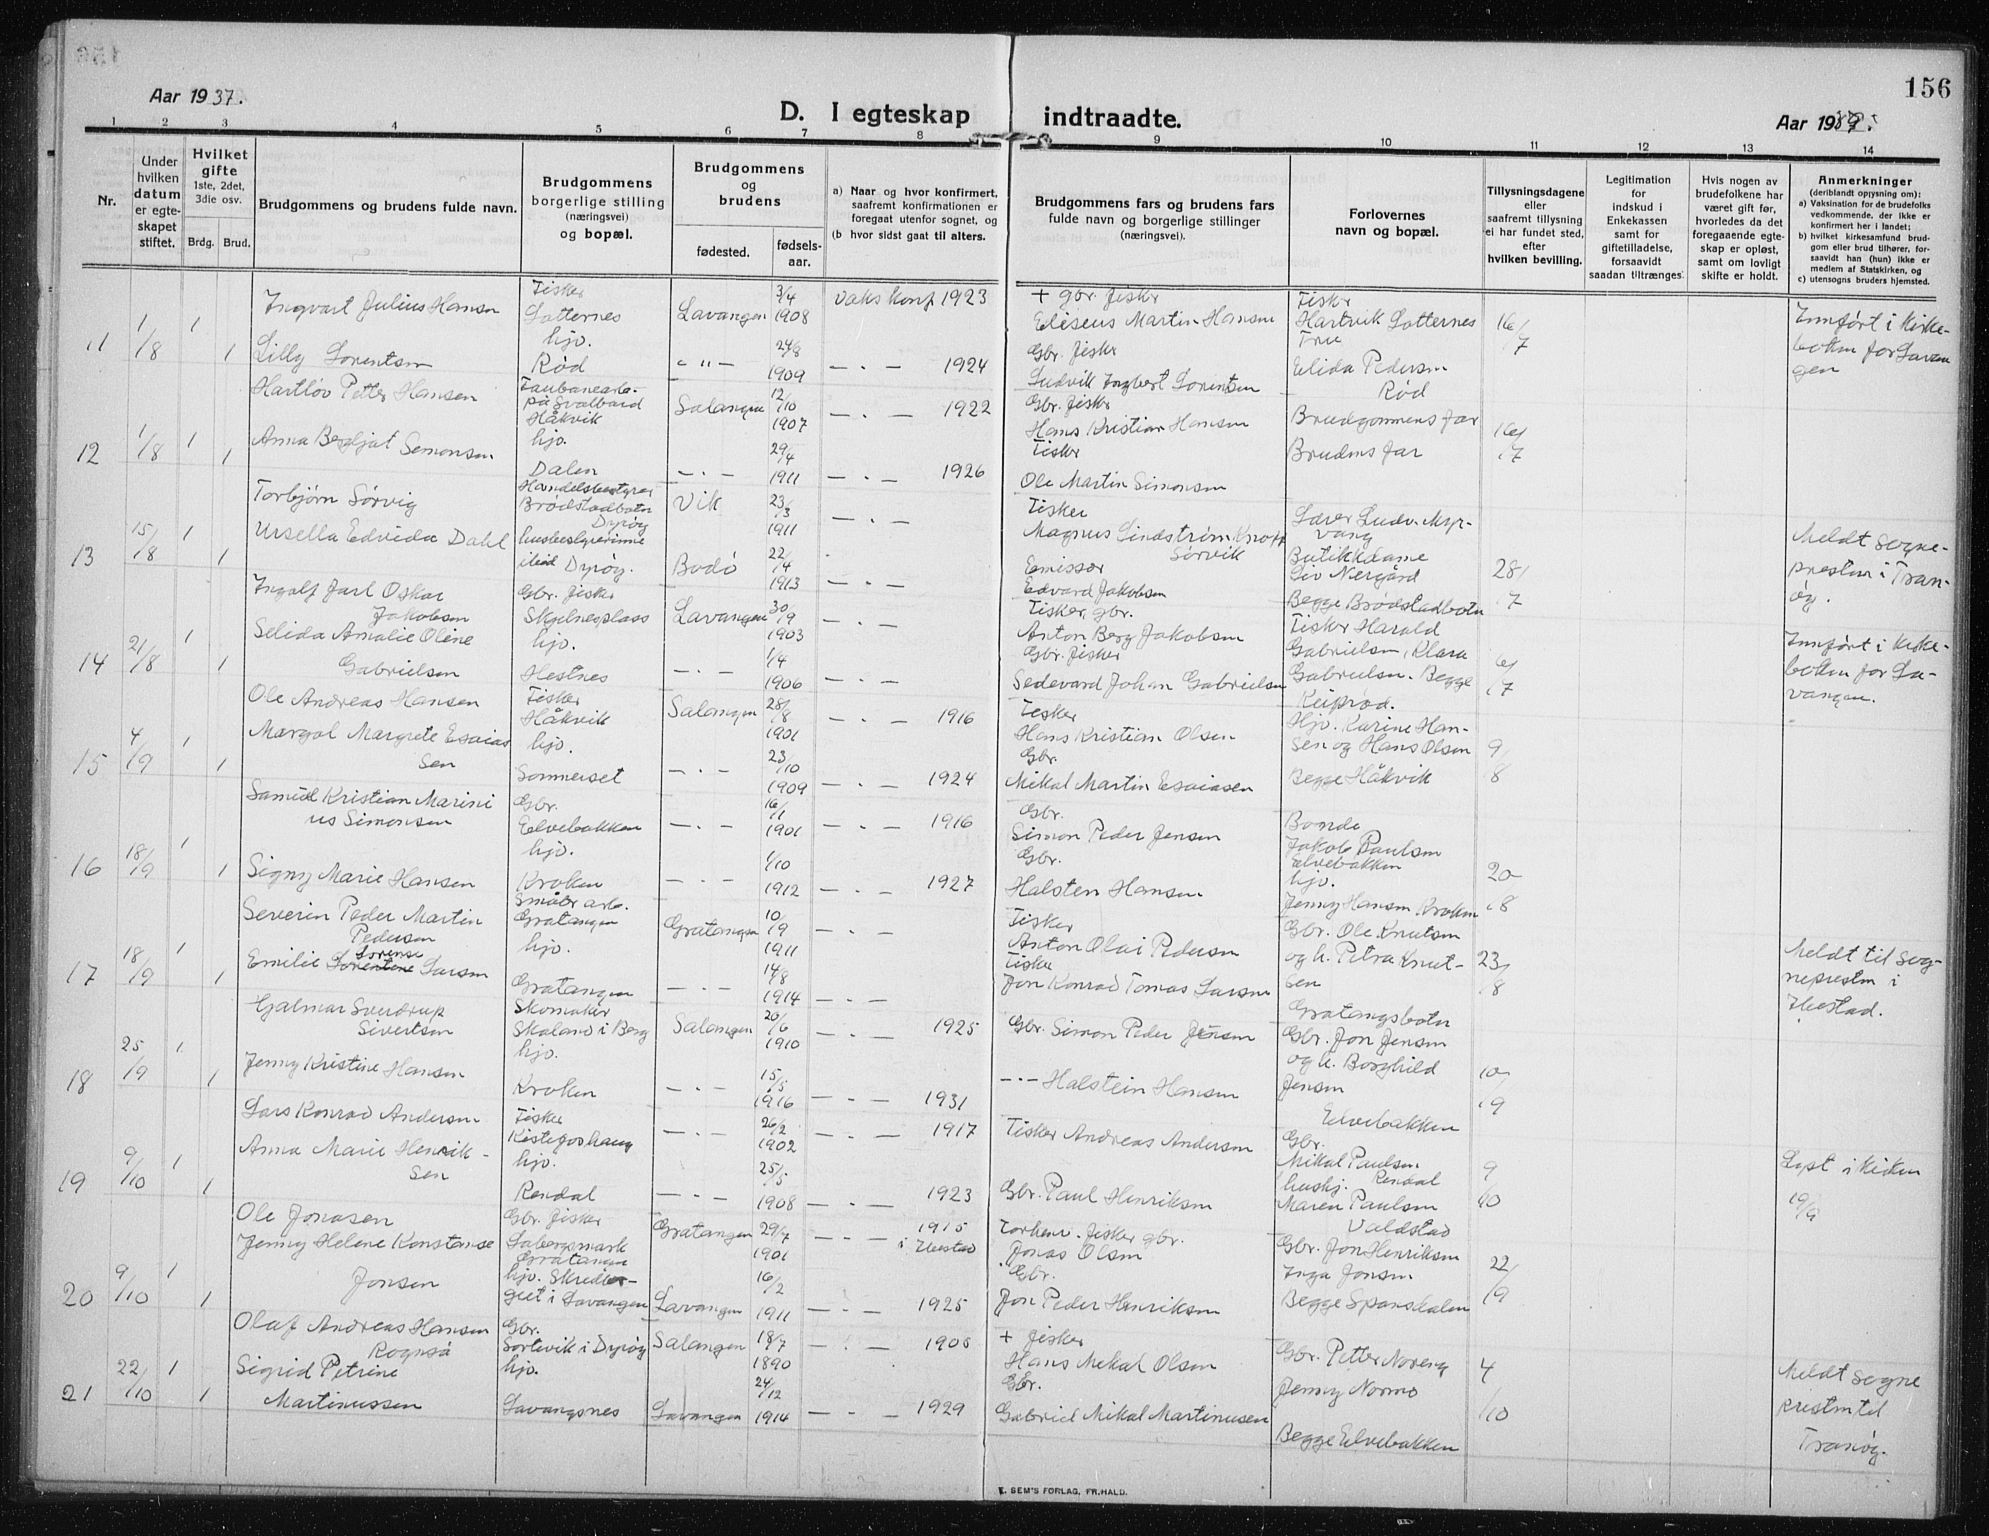 156
Aar 1937.
D. I egteskap indtraadte.
Aar 19
1 2 3 4 5 6 7 8 9 10 11 12 13 14
Nr.
Under hvilken datum er egteskapet stiftet.
Hvilket gifte
1ste, 2det, 3die osv.
Brdg. Brud.
Brudgommens og brudens fulde navn.
Brudgommens borgerlige stilling (næringsvei) og bopæl.
Brudgommens og brudens
fødested.
fødselsaar.
a) Naar og hvor konfirmert, saafremt konfirmationen er foregaat utenfor sognet, og
(b hvor sidst gaat til alters.
Brudgommens fars og brudens fars fulde navn og borgerlige stillinger (næringsvei).
Forlovernes navn og bopæl.
Tillysningsdagene eller saafremt tillysning ei har fundet sted, efter hvilken bevilling.
Legitimation for indskud i Enkekassen samt for giftetilladelse, forsaavidt saadan tiltrænges.
Hvis nogen av brudefolkene har været gift før, hvorledes da det foregaaende egteskap er opløst, samt om lovligt skifte er holdt.
Anmerkninger
(deriblandt opysning om):
a) Vaksination for de brudefolks vedkommende, der ikke er konfirmert her i landet;
b) hvilket kirkesamfund brudgom eller brud tilhører, forsaavidt han (hun) ikke er medlem af Statskirken, og
c) utensogns bruders hjemsted.
11 1/8 1 Ingvart Julius Hansen Fisker Lavangen 3/4 1908 vaks konf 1923 + gbr. fisker Eliseus Martin Hansen Fisker Hartvik 16/7
Innført i kirkeboken for Lavangen
1 Lilly Lorentsen hjv. Rød - " - 24/8 1909 - " - 1924 Gbr. fisker Ludvik Ingbert Lorentsen Elida Pedersen Rød
12 1/8 1 Hartlov Petter Hansen Taubanearb. på Svalbard Håkvik Salangen 12/10 1907 - " - 1922 Gbr. fisker Hans Kristian Hansen Brudgommens far 16/7
1 Anna Bergljot Simonsen hjv. Dalen - " - 29/4 1911 - " - 1926 Fisker Ole Martin Simonsen Brudens far
13 15/8 1 Torbjørn Sørvig Handelsbestyrer Brøstadbotn Dyrøy Vik 23/3 1911 - " - Fisker Magnus Lindstrøm Sørvik Lærer Ludv. Myrvang 28/7
Meldt sognepresten i Tranøy.
1 Ursella Edvida Dahl husbestyrerinne Dyrøy. Bodø 22/4 1913 Emissær Edvard Jakobsen Butikkdame Liv Nergård Begge Brødstadbotn
14 21/8 1 Ingolf Jarl Oskar Jakobsen Gbr. fisker Skjelnesplass Lavangen 30/9 1903 - " - Fisker, gbr. Anton Berg Jakobsen Fisker Harald Gabrielsen, Klara Gabrielsen. Begge 6/7
Innført i kirkeboken for Lavangen.
1 Selida Amalie Oline Gabrielsen hjv. Hestnes - " - 1/4 1906 - " - Gbr. fisker Sedevard Johan Gabrielsen
15 4/9 1 Ole Andreas Hansen Fisker Håkvik Salangen 28/8 1901 - " - 1916 Fisker Hans Kristian Olsen Hjv. Karine Hansen og Hans Olsen Begge Håkvik 9/8
1 Margot Margrete Esaiassen hjv. Sommerset - " - 23/10 1909 - " - 1924 Gbr. Mikal Martin Esaiasen
16 18/9 1 Samuel Kristian Marinius Simonsen Gbr. Elvebakken - " - 16/1 1901 - " - 1916 Gbr. Simon Peder Jensen Bonde Jakob Paulsen Elvebakken 20/8
1 Signy Marie Hansen hjv. Kroken - " - 1/10 1912 - " - 1927 Gbr. Halsten Hansen hjv. Jenny Hansen Kroken
17 18/9 1 Severin Peder Martin Pedersen Småbr. arb. Gratangen Gratangen 10/9 1911 - " - Fisker Anton Olai Pedersen Gbr. Ole Knutsen og h. Petra Knutsen Gratangsbotn 23/8
Meldt til sognepresten i Ibestad.
1 Emilie Lorense Larsen hjv. Gratangen - " - 14/8 1914 - " - Fisker Jon Konrad Tomas Larsen
18 25/9 1 Hjalmar Sverdrup Sivertsen Skomaker Skaland i Berg Salangen 20/6 1910 - " - 1925 Gbr. Simon Peder Jensen Gbr. Jon Jensen og h. Borghild Jensen Elvebakken 10/9
1 Jenny Kristine Hansen hjv. Kroken - " - 15/5 1916 - " - 1931 - " - Halstein Hansen
19 9/10 1 Lars Konrad Andersen Fisker Kistefoshaug - " - 26/2 1902 - " - 1917 Fisker Andreas Andersen Gbr. Mikal Paulsen Rendal 9/10
Lyst i kirken 19/9
1 Anna Marie Henriksen hjv. Rendal - " - 25/5 1908 - " - 1923 Gbr. Paul Henriksen hushj. Maren Paulsen Valdstad
20 9/10 1 Ole Jonasen Gbr. fisker Labergsmark Gratangen Gratangen 29/7 1901 - " - 1915 i Ibestad Forhenv. fisker gbr. Jonas Olsen Gbr. Jon Henriksen 22/9
1 Jenny Helene Konstanse Jonsen hjv. i Lavangen Lavangen 16/2 1911 - " - 1925 Gbr. Jon Peder Henriksen Inga Jonsen Begge Spansdalen
21 22/10 1 Olaf Andreas Hansen Rognså Gbr. Sørlevik i Dyrøy Salangen 18/7 1890 - " - 1905 + fisker Hans Mikal Olsen Gbr. Petter Noreng 4/10
Meldt sognepresten til Tranøy.
1 Sigrid Petrine Martinussen hjv. Lavangsnes Lavangen 24/12 1914 - " - 1929 Gbr. Gabriel Mikal Martinusen Jenny Normo Begge Elvebakken
E. SEM'S FORLAG, FR.HALD.